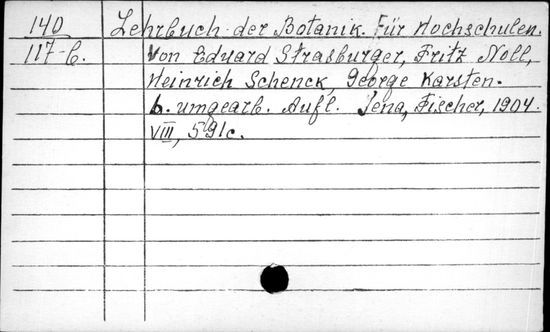 140 Lehrbuch der Botanik. Für Hochschulen.
117-б. Von Eduard Strasburger, Fritz Noll,
Heinrich Schenck, George Karsten.
6. umgearb. Aufl. Jena, Fischer, 1904.
VIII, 591c.